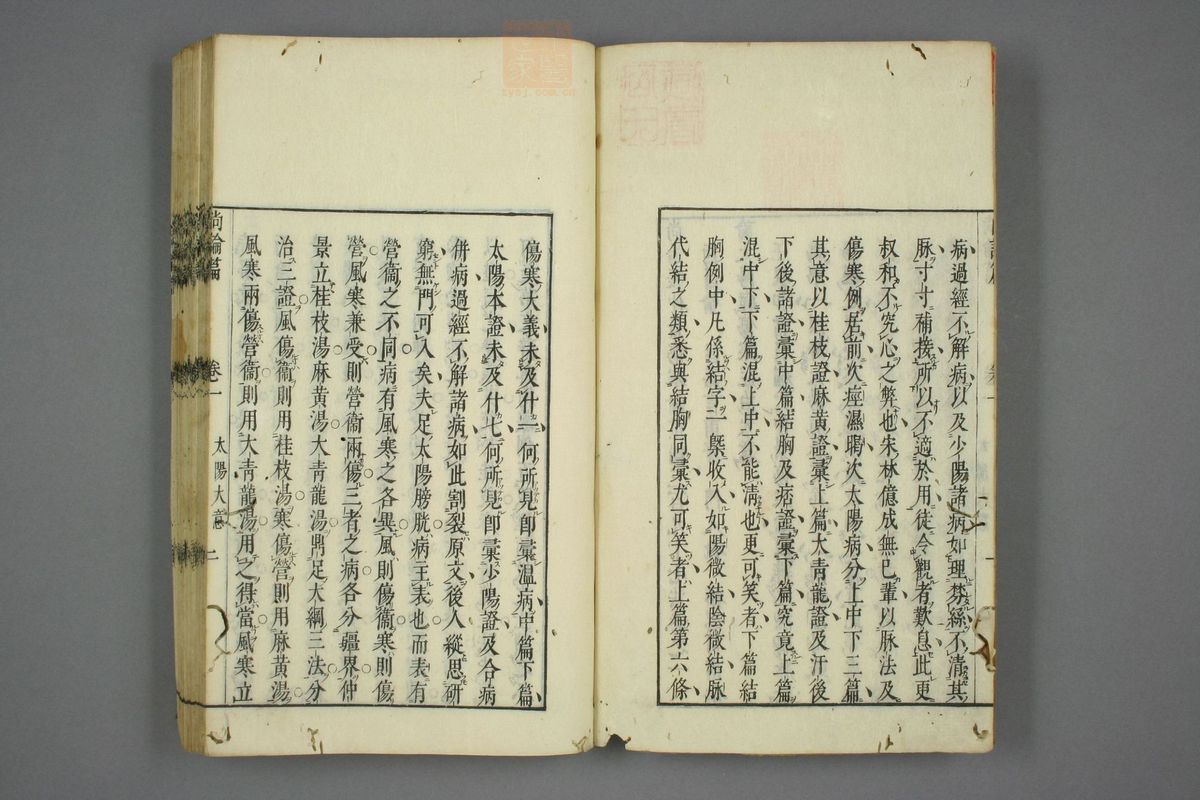 病過經不解病以及少陽諸病如理棼絲不清其
脉寸寸補接所以不適於用徒令觀者歎息此更
叔和不究心之弊也朱林億成無已輩以脉法及
傷寒例居前次痙濕暍次太陽病分上中下三篇
其意以桂枝證麻黃證彙上篇大青龍證及汗後
下後諸證彙中篇結胸及痞證彙下篇究竟上篇
混中下下篇混上中不能清也更可笑者下篇結
胸例中凡係結字一槩收入如陽微結陰微結脉
代結之類悉與結胸同彙尤可笑者上篇第六條
傷寒大義未及什一何所見卽彙溫病中篇下篇
太陽本證未及什七何所見卽彙少陽證及合病
併病過經不解諸病如此割裂原文後人縱思研
窮無門可入矣夫足太陽膀胱病主表也而表有
營衞之不同病有風寒之各異風則傷衞寒則傷
營風寒兼受則營衞兩傷三者之病各分疆界仲
景立桂枝湯麻黃湯大青龍湯鼎足大綱三法分
治三證風傷衞則用桂枝湯寒傷營則用麻黃湯
風寒兩傷營衞則用大青龍湯用之得當風寒立
尚論篇 卷一 太陽大意 二
zysj.com.cn